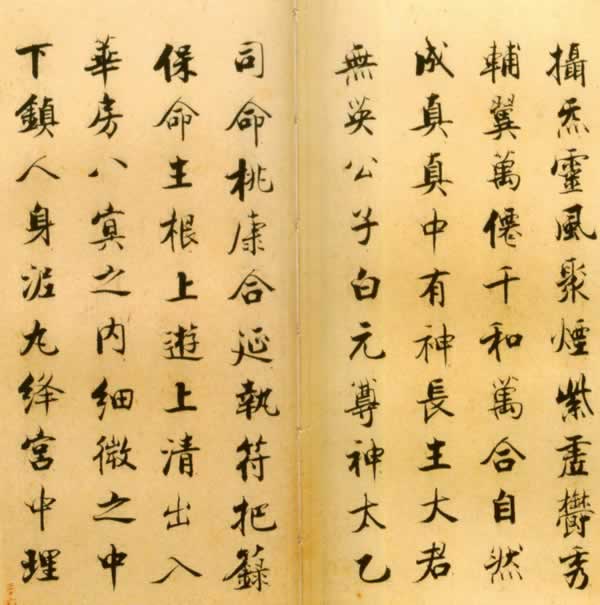 攝炁靈風聚煙紫虛鬱秀
輔翼萬僊千和萬合自然
成真真中有神長生大君
無英公子白元尊神太乙
司命桃康合延執符把籙
保命生根上遊上清出入
華房八冥之內細微之中
下鎮人身泥丸絳宮中理